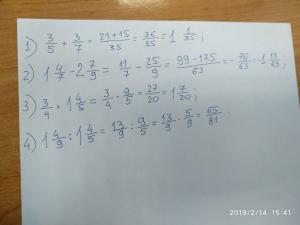 1) 3/5 + 3/7 = 21+15/35 = 36/35 = 1 1/35;
2) 1 4/7 - 2 7/9 = 11/7 - 25/9 = 99-175/63 = - 76/63 = - 1 13/63;
3) 3/4 · 1 4/5 = 3/4 · 9/5 = 27/20 = 1 7/20;
4) 1 4/9 : 1 4/5 = 13/9 : 9/5 = 13/9 · 5/9 = 65/81.
2019/2/14 15:41